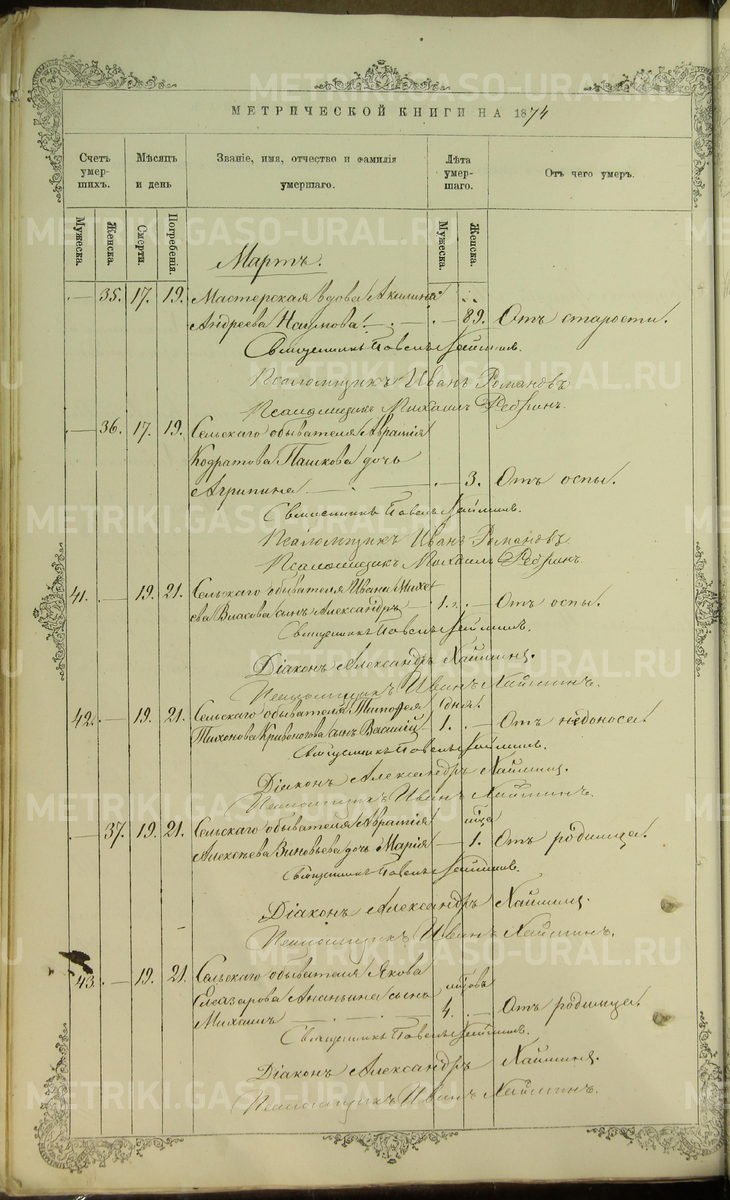 METRIKI.GASO-URAL.RU
МЕТРИЧЕСКОЙ КНИГИ НА 1874
Счетъ умер-шихъ.
Мѣсяцъ и день
Званіе, имя, отчество и фамилія умершаго.
Лѣта умер-шаго.
Отъ чего умеръ.
Мужеска. Женска. Смерти. Погребенія. Мужеска. Женска.
Мартъ.
35. 17. 19. Мастерская вдова Акилина
Андреева Наумова. 89. Отъ старости.
Священникъ Павелъ
Псаломщикъ Иванъ Романовъ
Псаломщикъ Михаилъ Ребринъ.
36. 17. 19. Сельскаго обывателя
Кодратова Пашкова дочь
Агрипина 3. Отъ оспы.
Священникъ Павелъ
Псаломщикъ Иванъ Романовъ
Псаломщикъ Михаилъ Ребринъ.
41. 19. 21. Сельскаго обывателя Ивана Михе-
ева Власова сынъ Александръ 1. Отъ оспы.
Священникъ Павелъ
Діаконъ Александръ
Псаломщикъ Иванъ
42. 19. 21. Сельскаго обывателя Тимофея дня.
Тихонова Кривоногова сынъ Василій 1. Отъ недоноса.
Священникъ Павелъ
Діаконъ Александръ
Псаломщикъ Иванъ
37. 19. 21. Сельскаго обывателя
Алексѣева Зиновьева дочь Марія 1. Отъ родимца.
Священникъ Павелъ
Діаконъ Александръ
Псаломщикъ Иванъ
43. 19. 21. Сельскаго обывателя Якова
Елеазарова Ананьина сынъ
Михаилъ 4. Отъ родимца.
Священникъ Павелъ
Діаконъ Александръ
Псаломщикъ Иванъ